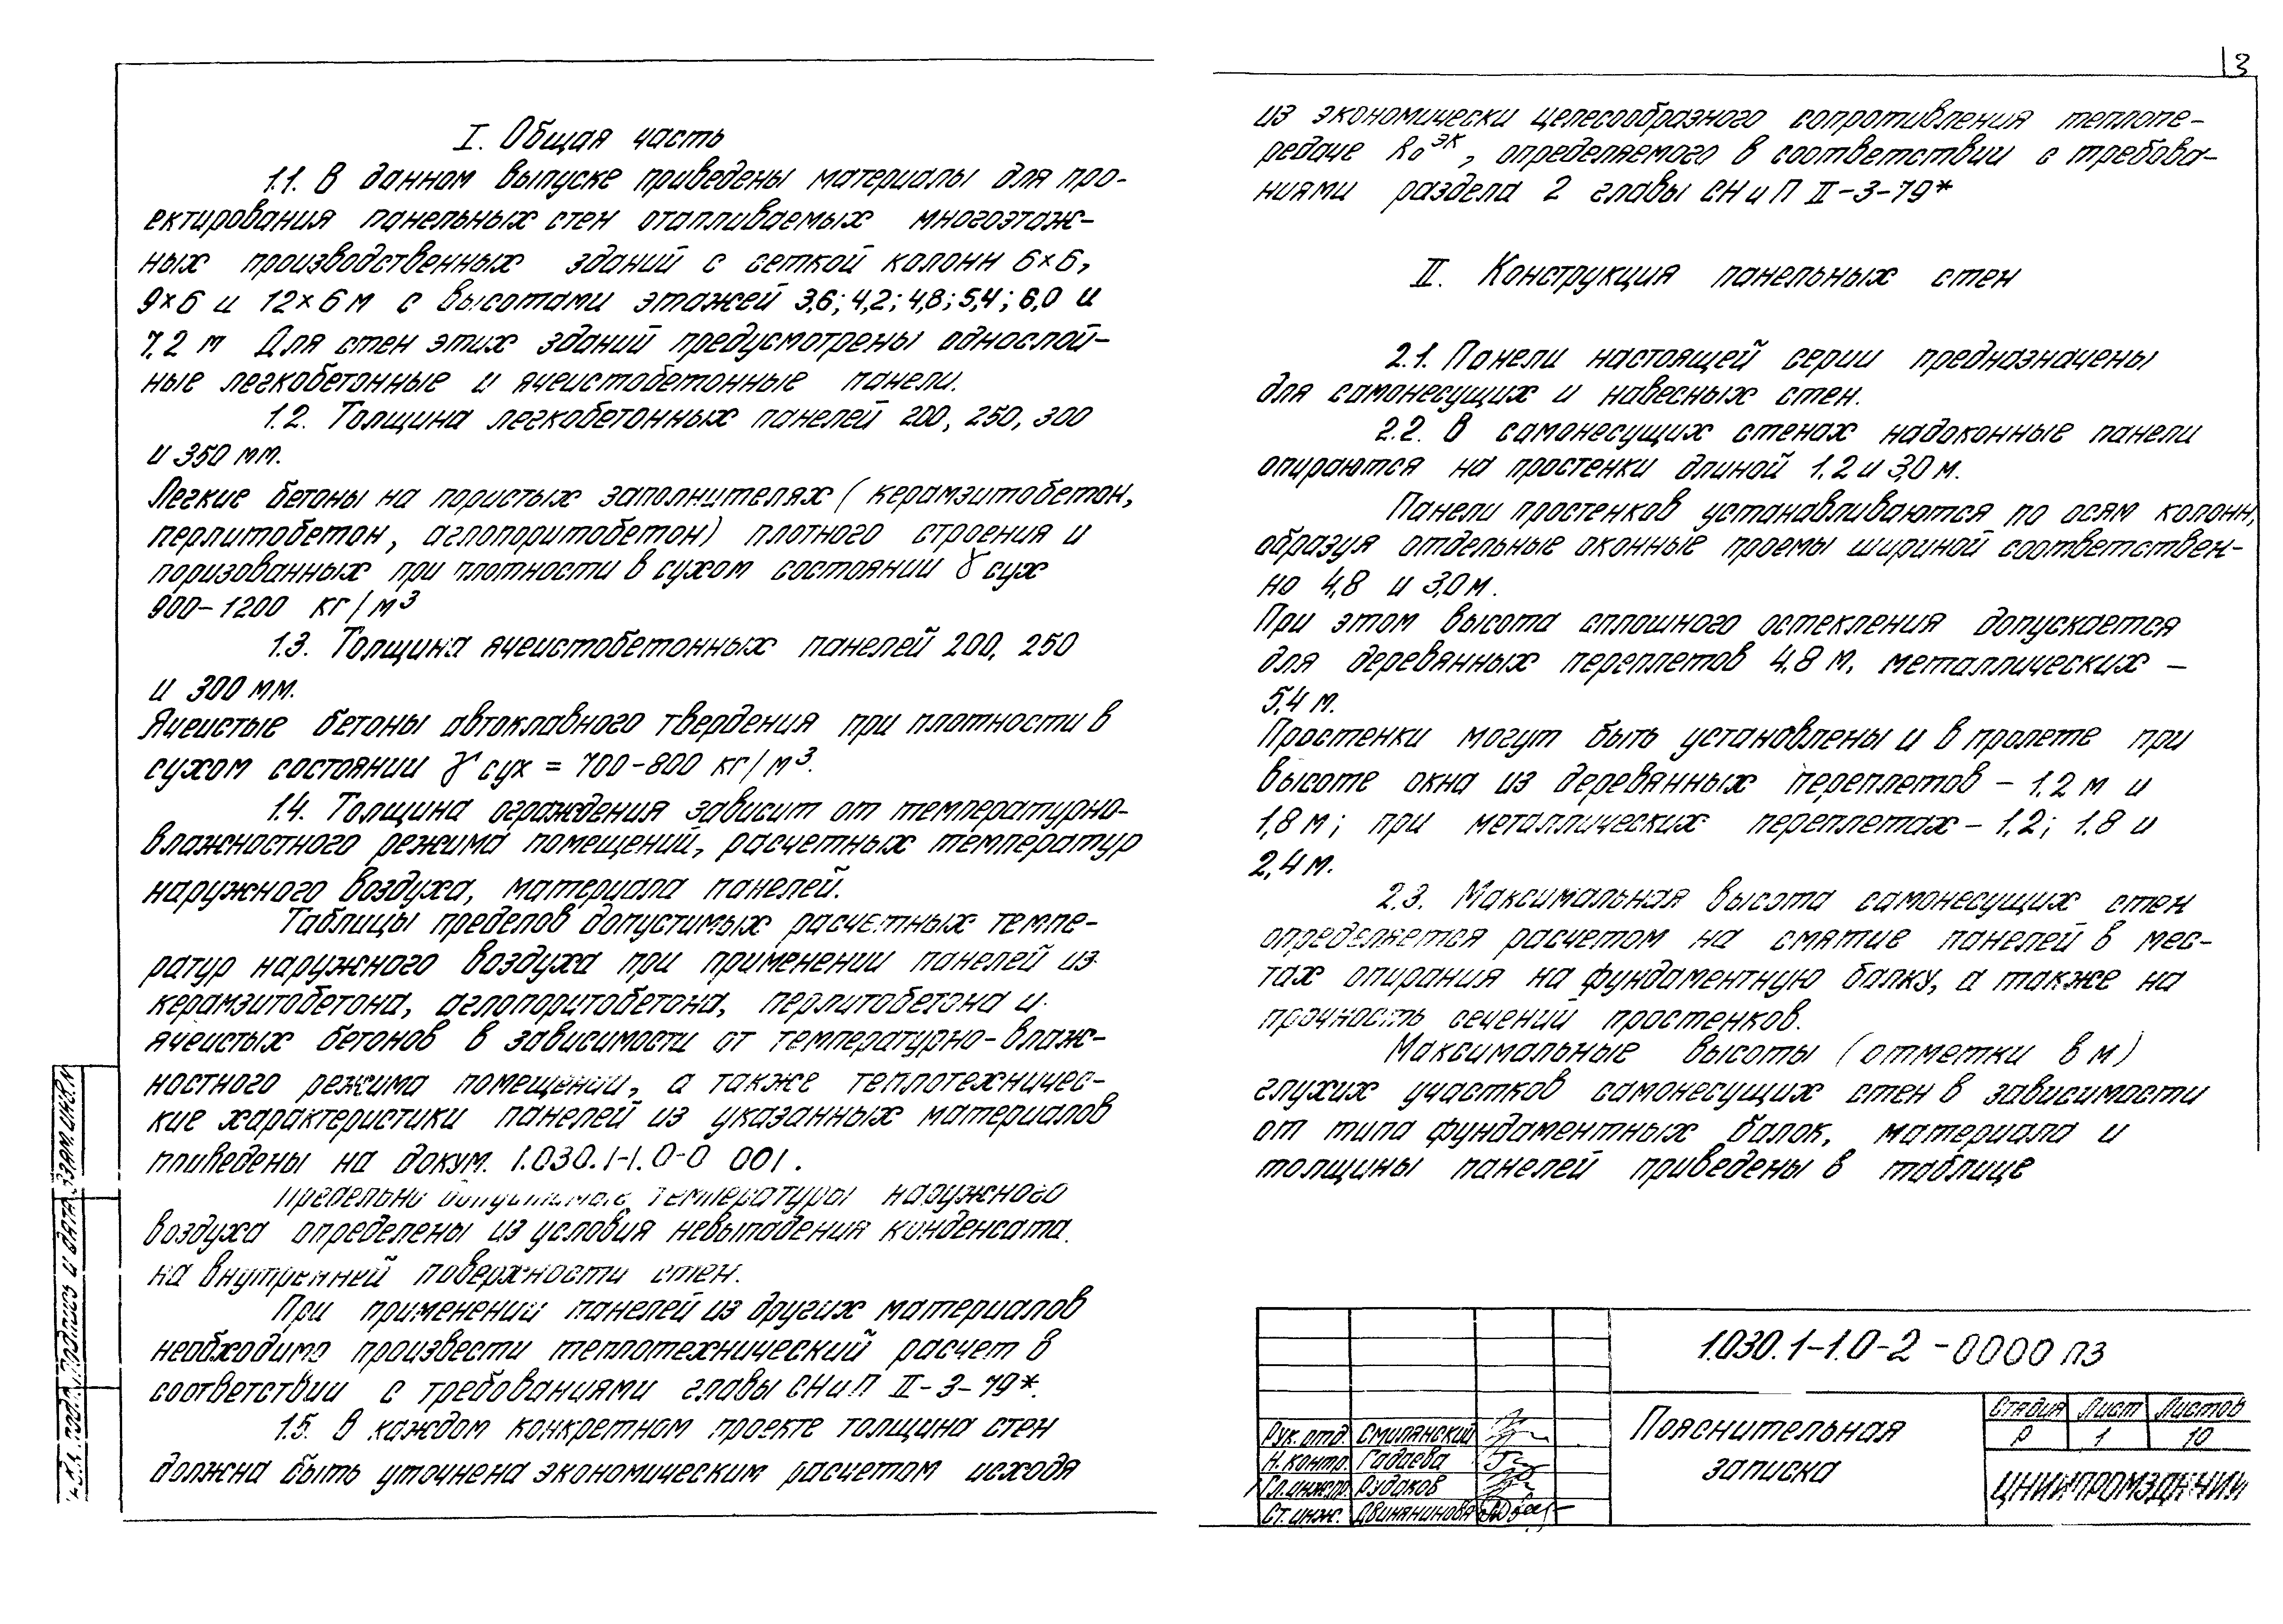 I. Общая часть
1.1. В данном выпуске приведены материалы для про-
ектирования панельных стен отапливаемых многоэтаж-
ных производственных зданий с сеткой колонн 6×6,
9×6 и 12×6 м с высотами этажей 3,6; 4,2; 4,8; 5,4; 6,0 и
7,2 м Для стен этих зданий предусмотрены однослой-
ные легкобетонные и ячеистобетонные панели.
1.2. Толщина легкобетонных панелей 200, 250, 300
и 350 мм.
Легкие бетоны на пористых заполнителях (керамзитобетон,
перлитобетон, аглопоритобетон) плотного строения и
поризованных при плотности в сухом состоянии γ сух
900-1200 кг/м³
1.3. Толщина ячеистобетонных панелей 200, 250
и 300 мм.
Ячеистые бетоны автоклавного твердения при плотности в
сухом состоянии γ сух = 700-800 кг/м³.
1.4. Толщина ограждения зависит от температурно-
влажностного режима помещений, расчетных температур
наружного воздуха, материала панелей.
Таблицы пределов допустимых расчетных темпе-
ратур наружного воздуха при применении панелей из
керамзитобетона, аглопоритобетона, перлитобетона и
ячеистых бетонов в зависимости от температурно-влаж-
ностного режима помещений, а также теплотехничес-
кие характеристики панелей из указанных материалов
приведены на докум. 1.030.1-1.0-0 001.
Предельно допустимые температуры наружного
воздуха определены из условия невыпадения конденсата
на внутренней поверхности стен.
При применении панелей из других материалов
необходимо произвести теплотехнический расчет в
соответствии с требованиями главы СНиП II-3-79*.
1.5. В каждом конкретном проекте толщина стен
должна быть уточнена экономическим расчетом исходя
3
из экономически целесообразного сопротивления теплопе-
редаче Rоэк, определяемого в соответствии с требова-
ниями раздела 2 главы СНиП II-3-79*
II. Конструкция панельных стен
2.1. Панели настоящей серии предназначены
для самонесущих и навесных стен.
2.2. В самонесущих стенах надоконные панели
опираются на простенки длиной 1,2 и 3,0 м.
Панели простенков устанавливаются по осям колонн,
образуя отдельные оконные проемы шириной соответствен-
но 4,8 и 3,0 м.
При этом высота сплошного остекления допускается
для деревянных переплетов 4,8 м, металлических -
5,4 м.
Простенки могут быть установлены и в пролете при
высоте окна из деревянных переплетов - 1.2 м и
1,8 м; при металлических переплетах - 1,2; 1.8 и
2,4 м.
2.3. Максимальная высота самонесущих стен
определяется расчетом на смятие панелей в мес-
тах опирания на фундаментную балку, а также на
прочность сечений простенков.
Максимальные высоты (отметки в м)
глухих участков самонесущих стен в зависимости
от типа фундаментных балок, материала и
толщины панелей приведены в таблице
1.030.1-1.0-2-0000 ПЗ
Пояснительная
записка
Стадия Лист Листов
Р 1 10
ЦНИИПРОМЗДАНИЙ
Рук. отд. Смилянский
Н. контр. Гадаева
Гл. инж. пр. Рудаков
Ст. инж. Двинянинова
Взам. инв. N
Подпись и дата